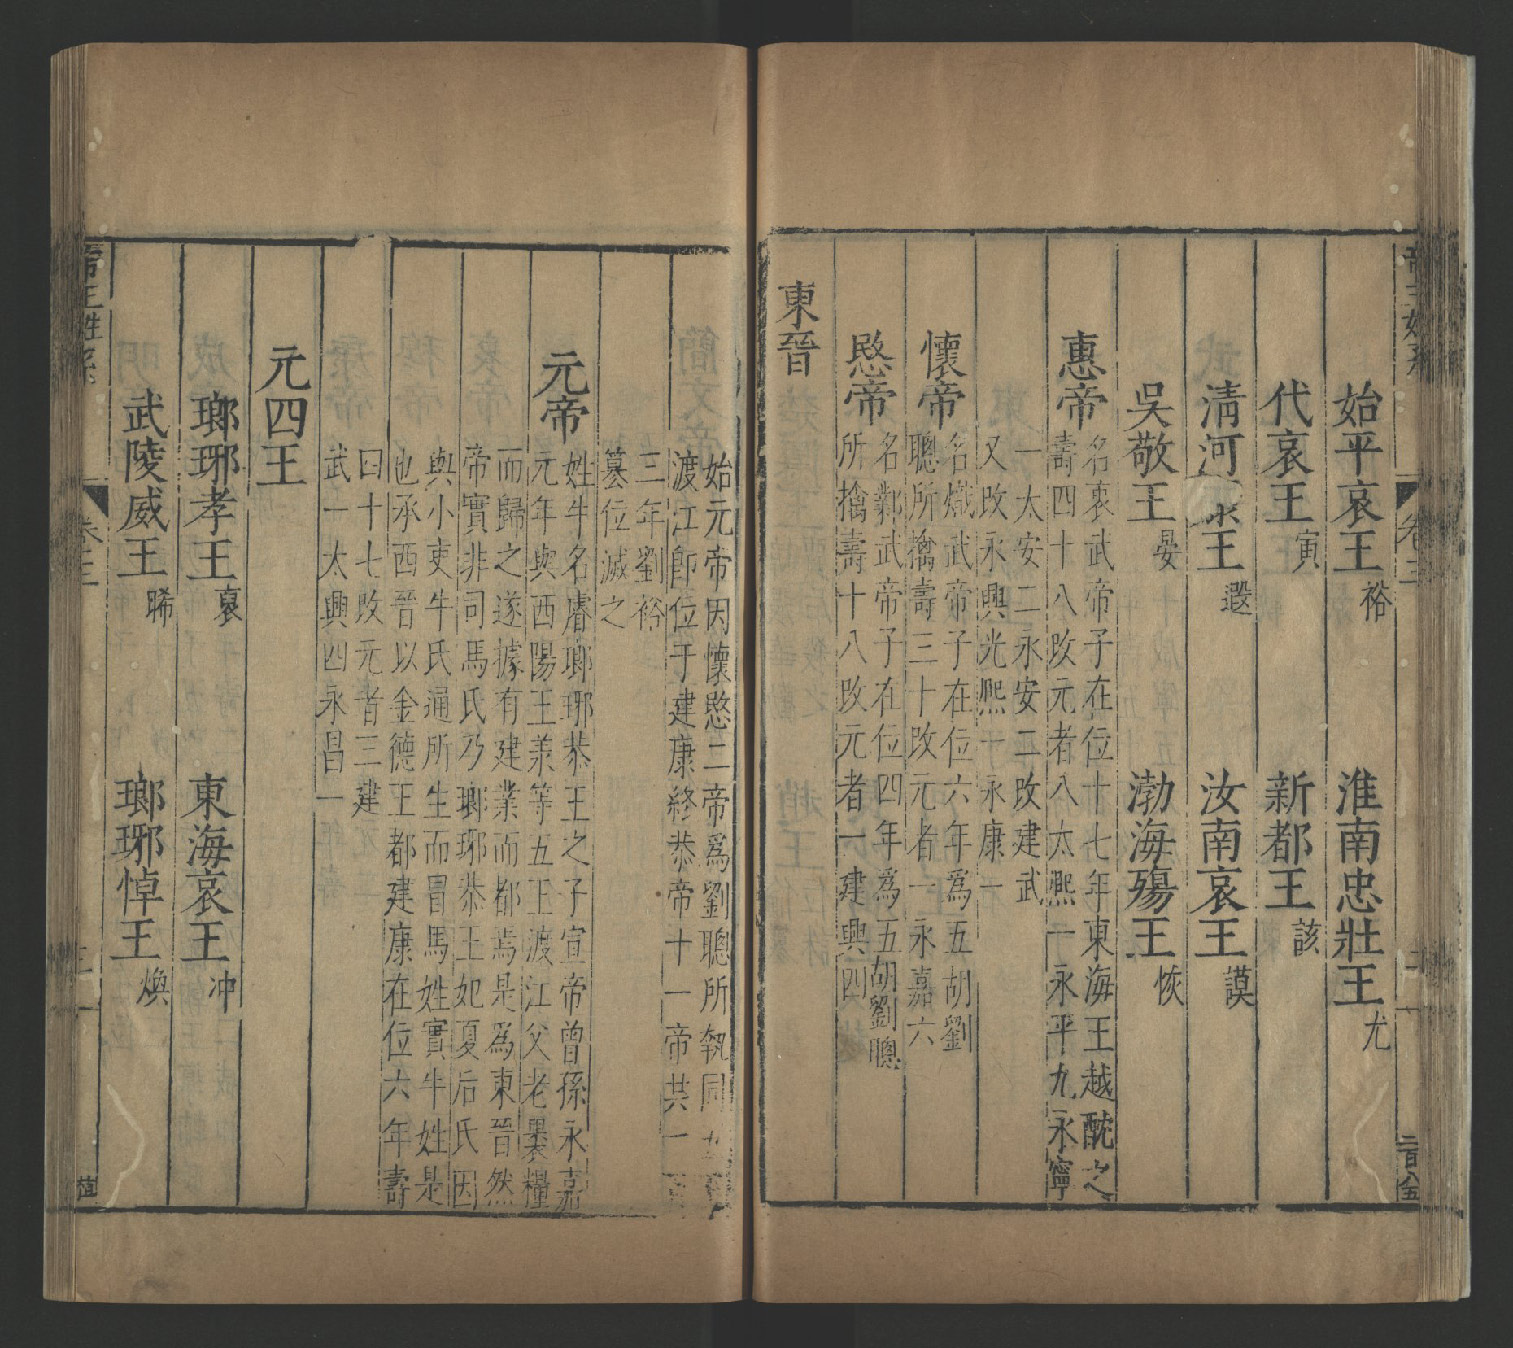 始平哀王裕 淮南忠壯王尤
代哀王寅 新都王該
清河康王遐 汝南哀王謨
吳敬王晏 渤海殤王恢
惠帝名衷武帝子在位十七年東海王越酖之
壽四十八改元者八太熙一永平九永寧
一太安二永安二改建武
又改永興光熙一永康一
懷帝名熾武帝子在位六年爲五胡劉
聰所擒壽三十改元者一永嘉六
愍帝名鄴武帝子在位四年爲五胡劉聰
所擒壽十八改元者一建興四
東晉
始元帝因懷愍二帝爲劉聰所執同
渡江卽位于建康終恭帝十一帝共一
三年劉裕
篡位滅之
元帝姓牛名睿瑯琊恭王之子宣帝曾孫永嘉
元年與西陽王羕等五王渡江父老裹糧
而歸之遂據有建業而都焉是爲東晉然
帝實非司馬氏乃瑯琊恭王妃夏后氏因
與小吏牛氏通所生而冒馬姓實牛姓是
也承西晉以金德王都建康在位六年壽
四十七改元者三建
武一太興四永昌一
元四王
瑯琊孝王裒 東海哀王冲
武陵威王晞 瑯琊悼王煥
帝王姓系
卷三